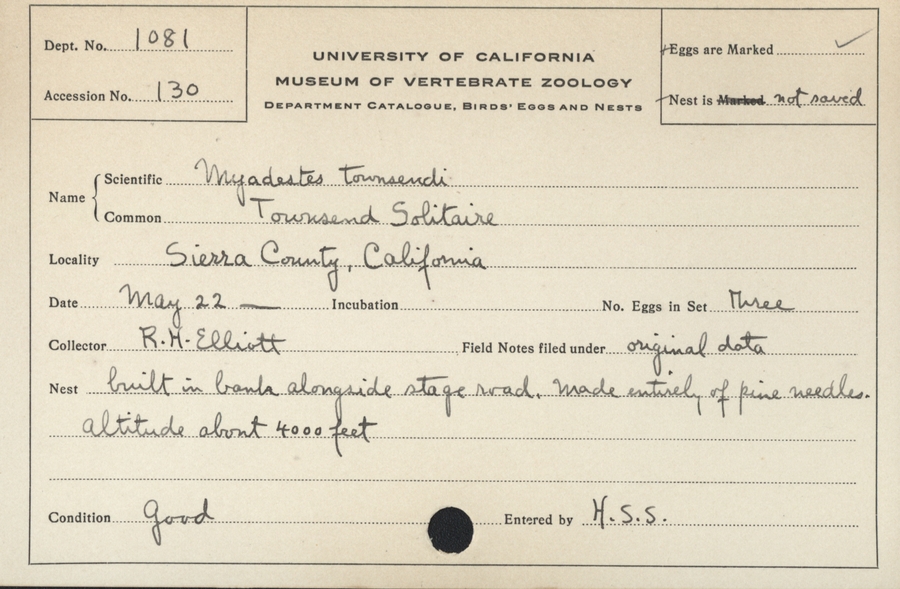 Dept. No. 1081
Accession No. 130
UNIVERSITY OF CALIFORNIA
MUSEUM OF VERTEBRATE ZOOLOGY
DEPARTMENT CATALOGUE, BIRDS' EGGS AND NESTS
Eggs are Marked ✓
Nest is Marked not saved
Name
Scientific Myadestes townsendi
Common Townsend Solitaire
Locality Sierra County, California
Date May 22 — Incubation No. Eggs in Set Three
Collector R. H. Elliott Field Notes filed under original data
Nest built in bank alongside stage road. Made entirely of pine needles.
altitude about 4000 feet
Condition good Entered by H. S. S.